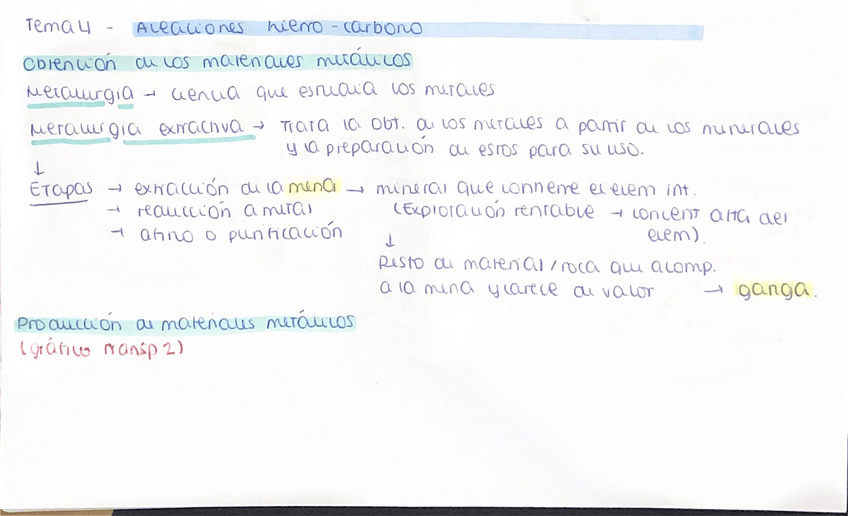 Tema 4 - Aleaciones hierro-carbono
Obtención de los materiales metálicos
Metalurgia → ciencia que estudia los metales
Metalurgia extractiva → Trata la obt. de los metales a partir de los minerales
y la preparación de estos para su uso.
↓
Etapas → extracción de la mena → mineral que contiene el elem int.
→ reducción a metal (Exploración rentable → concent alta del
→ afino o purificación elem).
↓
Resto de material/roca que acomp.
a la mena y carece de valor → ganga.
Producción de materiales metálicos
(gráfico transp 2)